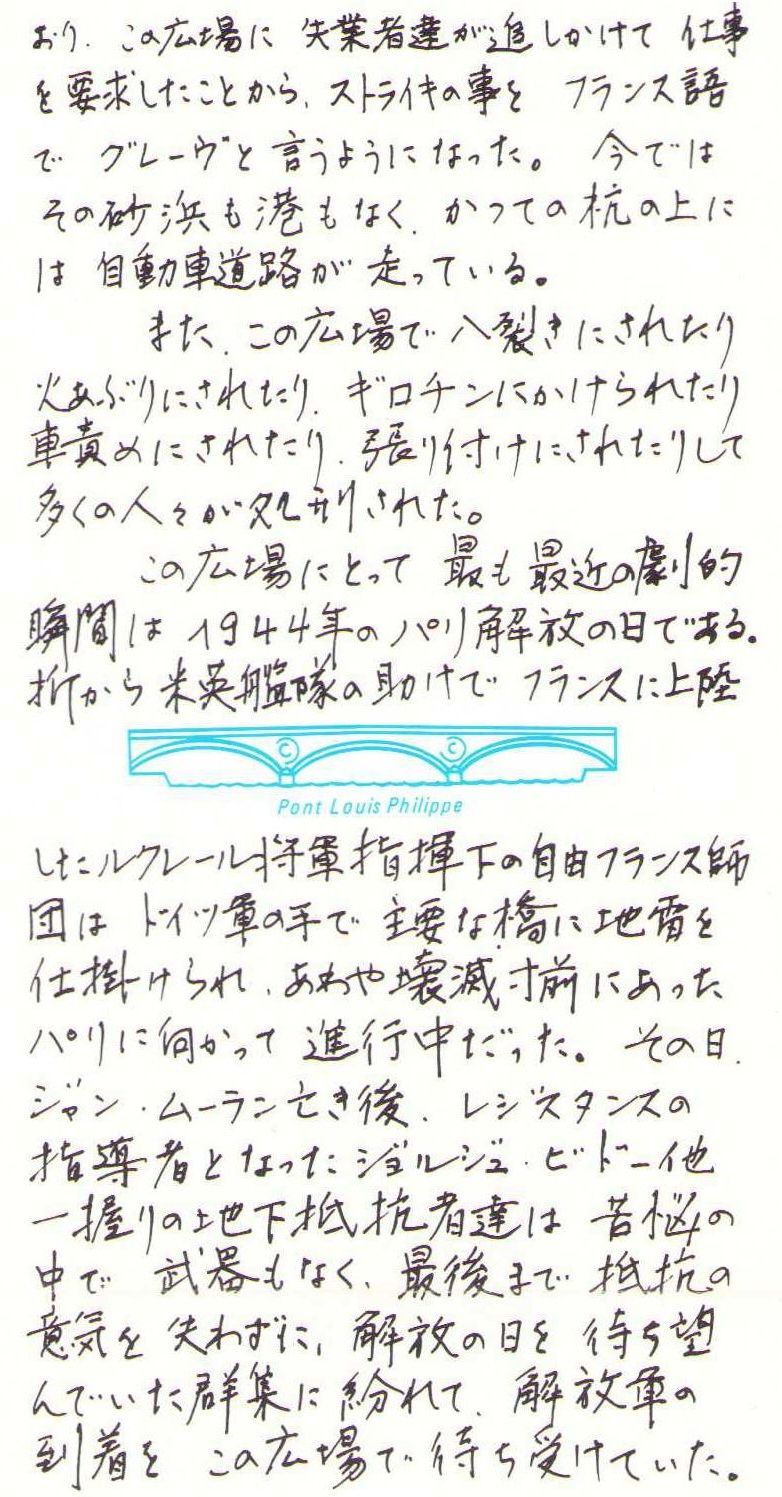 おり、この広場に 失業者達が追しかけて 仕事
を要求したことから、ストライキの事を フランス語
で グレーヴと 言うようになった。 今では
その砂浜も港もなく、かつての杭の上に
は 自動車道路が 走っている。
また、この広場で八裂きにされたり
火あぶりにされたり、ギロチンにかけられたり
車責めにされたり、張り付けにされたりして
多くの人々が処刑された。
この広場にとって 最も最近の劇的
瞬間は 1944年のパリ解放の日である。
折から米英艦隊の助けで フランスに上陸
Pont Louis Philippe
したルクレール将軍指揮下の自由フランス師
団は ドイツ軍の手で 主要な橋に地雷を
仕掛けられ、あわや壊滅寸前にあった
パリに向かって 進行中だった。 その日、
ジャン・ムーラン亡き後、レジスタンスの
指導者となったジョルジュ・ビドー他
一握りの地下抵抗者達は 苦悩の
中で 武器もなく、最後まで 抵抗の
意気を 失わずに、解放の日を 待ち望
んでいた群集に紛れて、解放軍の
到着を この広場で待ち受けていた。